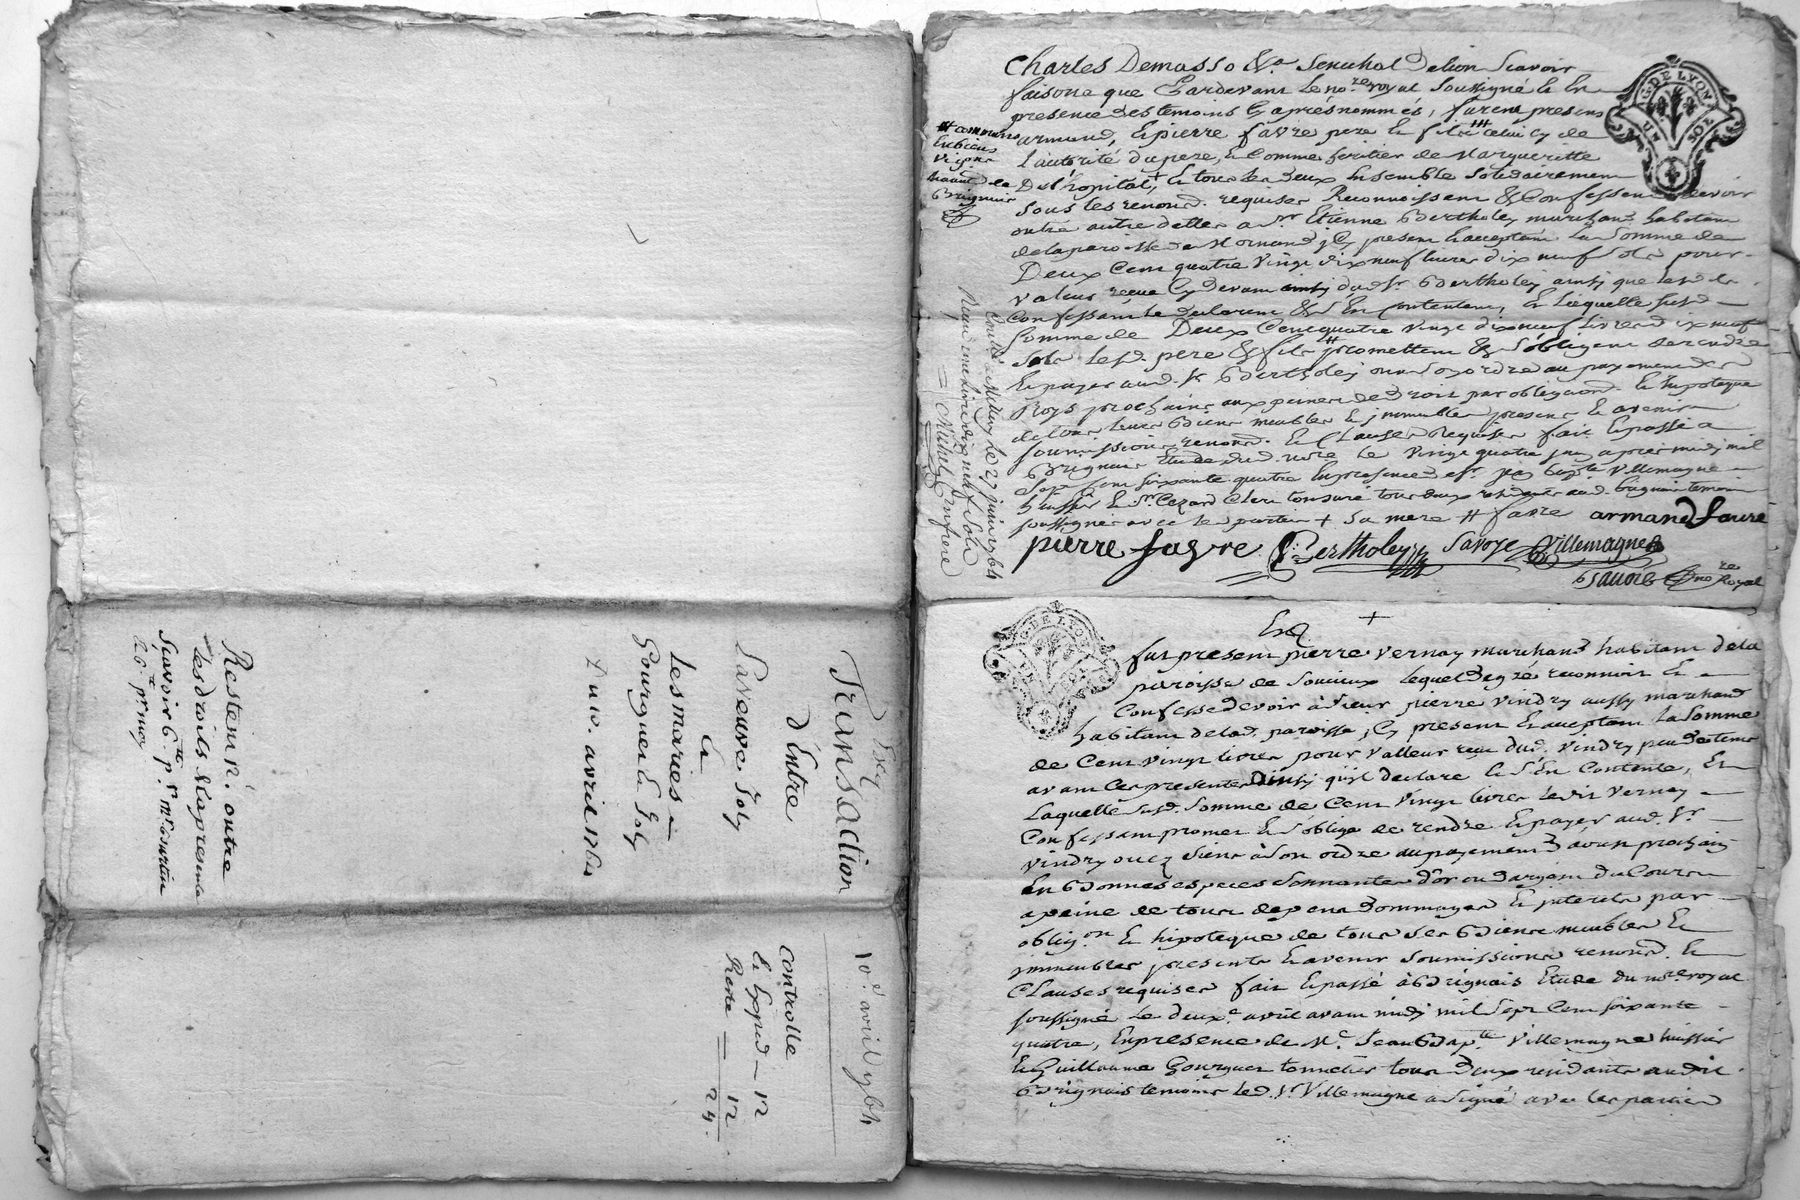 Transaction
d'Entre
La veuve Joly
Et
Les mariés
Gourguet & Joly
Du 10. avril 1764
Reste in 12.# outre
les droits & la presente
10.e avril 1764
controlle
12
Reste — 12
24
Charles Demasso &a. Senechal de Lion Scavoir
faisons que Pardevant le no.re royal soussigné & en
presence des temoins cy aprés nommés, furent presens
armand, & pierre favre pere & fils celui cy de
l'autorité du pere, & comme heritier de Margueritte
Delhôpital + & tous les deux ensemble solidairement
sous les renonc. requises Reconnoissent & Confessent devoir
outre autre dettes a Sr Etienne Bertholey marchand habitant
de la paroisse de Mornand icy present & acceptant la somme de
Deux cent quatre vingt dix neuf livres dix neuf sols pour
valeur reçue cy devant dud. Sr Bertholey ainsi que lesd.
Confessants le declarent & s'en contentent, & laquelle susd.
somme de Deux cent quatre vingt dix neuf livres dix neuf
sols lesd. pere & fils promettent & s'obligent de rendre
& payer aud. Sr Bertholey ou a son ordre au payement des
Roys prochains aux peines de droit par obligaon. & hipoteque
de tous leurs biens meubles & immeubles presens & avenir
soumissions renonc. & Clauses Requises fait & passé a
Brignais Etude dud. no.re le vingt quatre juin apres midy mil
sept cent soixante quatre en presence de Sr Jean bapte Villemagne
huissier & Sr Cezard Clerc tonsuré tous deux residents aud. brignais temoins
soussignés avec les parties + sa mere # favre armand favre
pierre favre Bertholey Savoye Villemagne
no.re Royal
# communs
en biens
Brignais
Controllé a Millery le 27 juin 1764
Reçu trente livre dix neuf sols
Michel
G. DE LYON
UN SOL
+
fut present pierre vernay marchand habitant de la
paroisse de Soucieux lequel de gré reconnoit &
Confesse devoir à Sieur pierre vindry aussy marchand
habitant de lad. paroisse icy present & acceptant la somme
de Cent vingt livres pour valleur reçue dud. vindry peu de tems
avant ces presentes ainsi qu'il declare & s'en Contente, Et
laquelle susd. somme de Cent vingt livres ledit vernay
Confessant promet & s'oblige de rendre & payer aud. Sr
vindry ou ez siens à son ordre au payement d'aoust prochain
en bonnes especes sonnantes d'or ou d'argent du Cours
a peine de tous depens dommages & interets par
oblig.on & hipoteque de tous ses biens meubles &
immeubles presents & avenir soumissions renonc. &
Clauses requises fait & passé à Brignais Etude du no.re royal
soussigné le deux.e avril avant midy mil sept cent soixante
quatre, en presence de Me. Jean Bap.te Villemagne huissier
& Guillaume Gourguet tonnelier tous deux residants audit
Brignais temoins led. Sr Villemagne a signé avec les parties
G. DE LYON